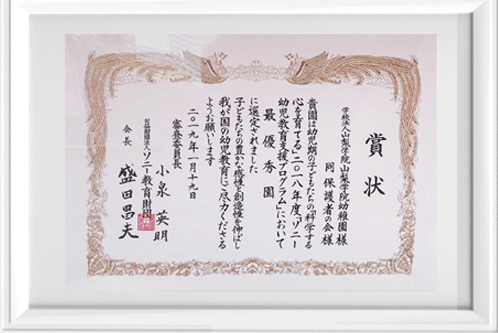 賞状
学校法人山梨学院山梨学院幼稚園様
同保護者の会様
貴園は幼児期の子どもたちの「科学する
心を育てる」二〇一八年度「ソニー
幼児教育支援プログラム」において
最優秀園
に選定されました
子どもたちの豊かな感性と創造性を伸ばし
我が国の幼児教育にご尽力くださる
ようお願いします
二〇一九年一月十九日
審査委員長
小泉英明
公益財団法人ソニー教育財団
会長
盛田昌夫